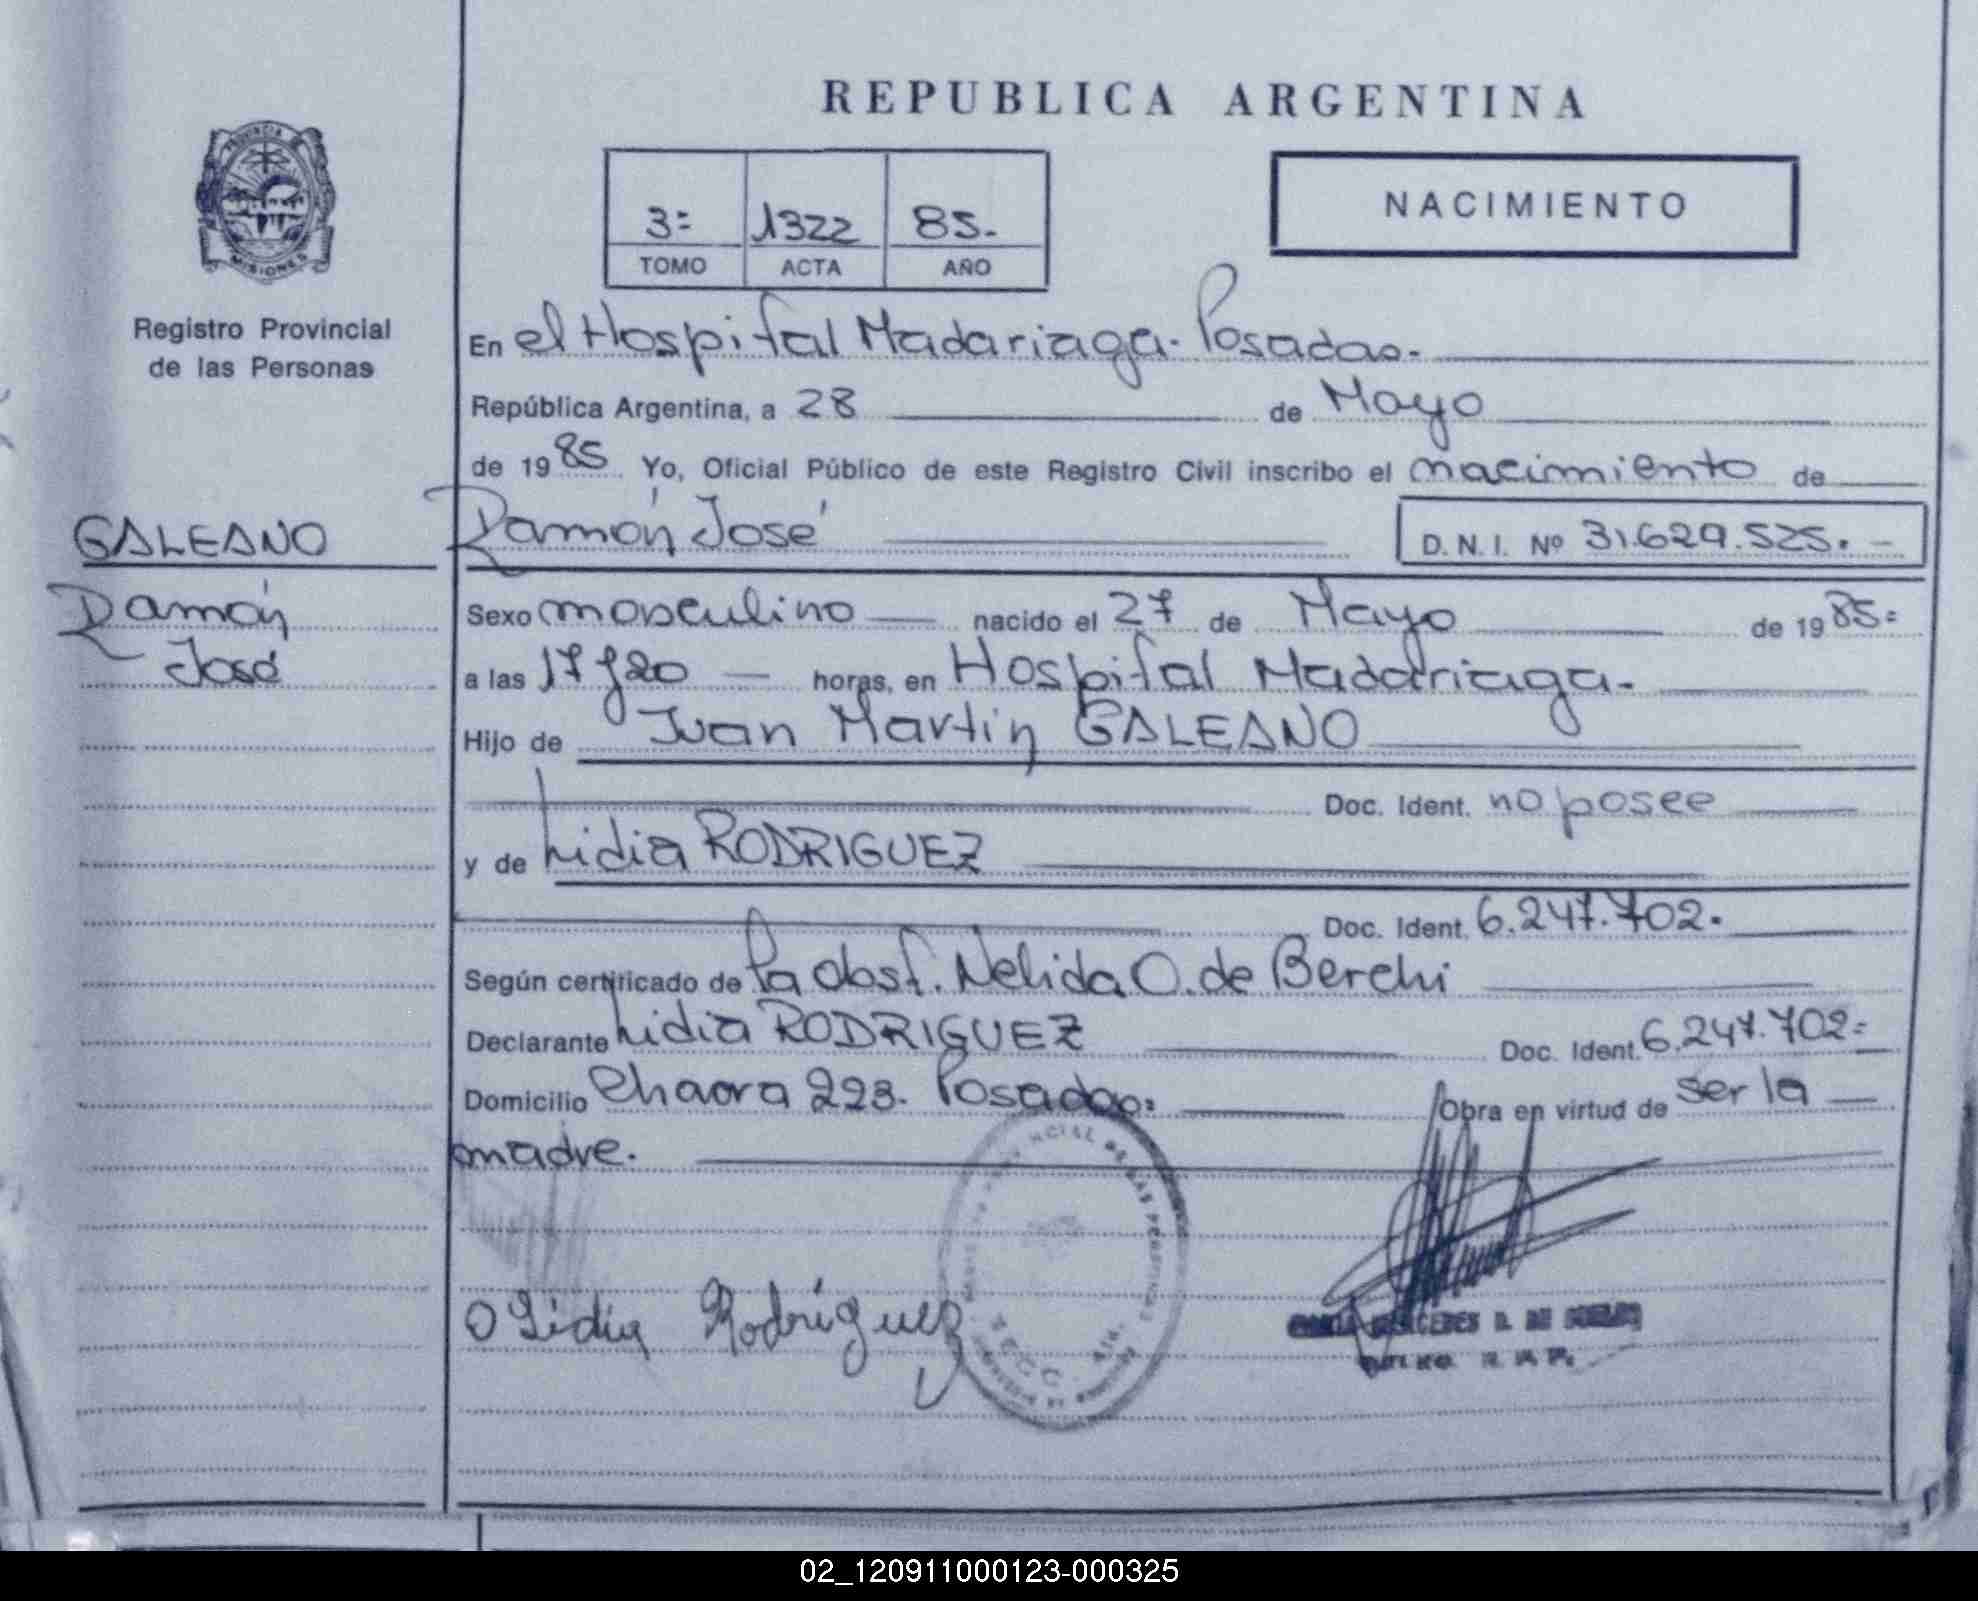 REPUBLICA ARGENTINA
PROVINCIA DE
MISIONES
Registro Provincial
de las Personas
3= 1322 85.-
TOMO ACTA AÑO
NACIMIENTO
En el Hospital Madariaga. Posadas.
República Argentina, a 28 de Mayo
de 1985 Yo, Oficial Público de este Registro Civil inscribo el nacimiento de
GALEANO
Ramón José D.N.I. Nº 31.629.525.-
Ramón
José
Sexo masculino nacido el 27 de Mayo de 1985=
a las 17 y 20 horas, en Hospital Madariaga.
Hijo de Juan Martín GALEANO
Doc. Ident. no posee
y de Lidia RODRIGUEZ
Doc. Ident. 6.247.702.
Según certificado de la obst. Nelida O. de Berchi
Declarante Lidia RODRIGUEZ Doc. Ident. 6.247.702=
Domicilio Chacra 223. Posadas= Obra en virtud de ser la
madre.
O Lidia Rodríguez
MERCEDES
02_120911000123-000325